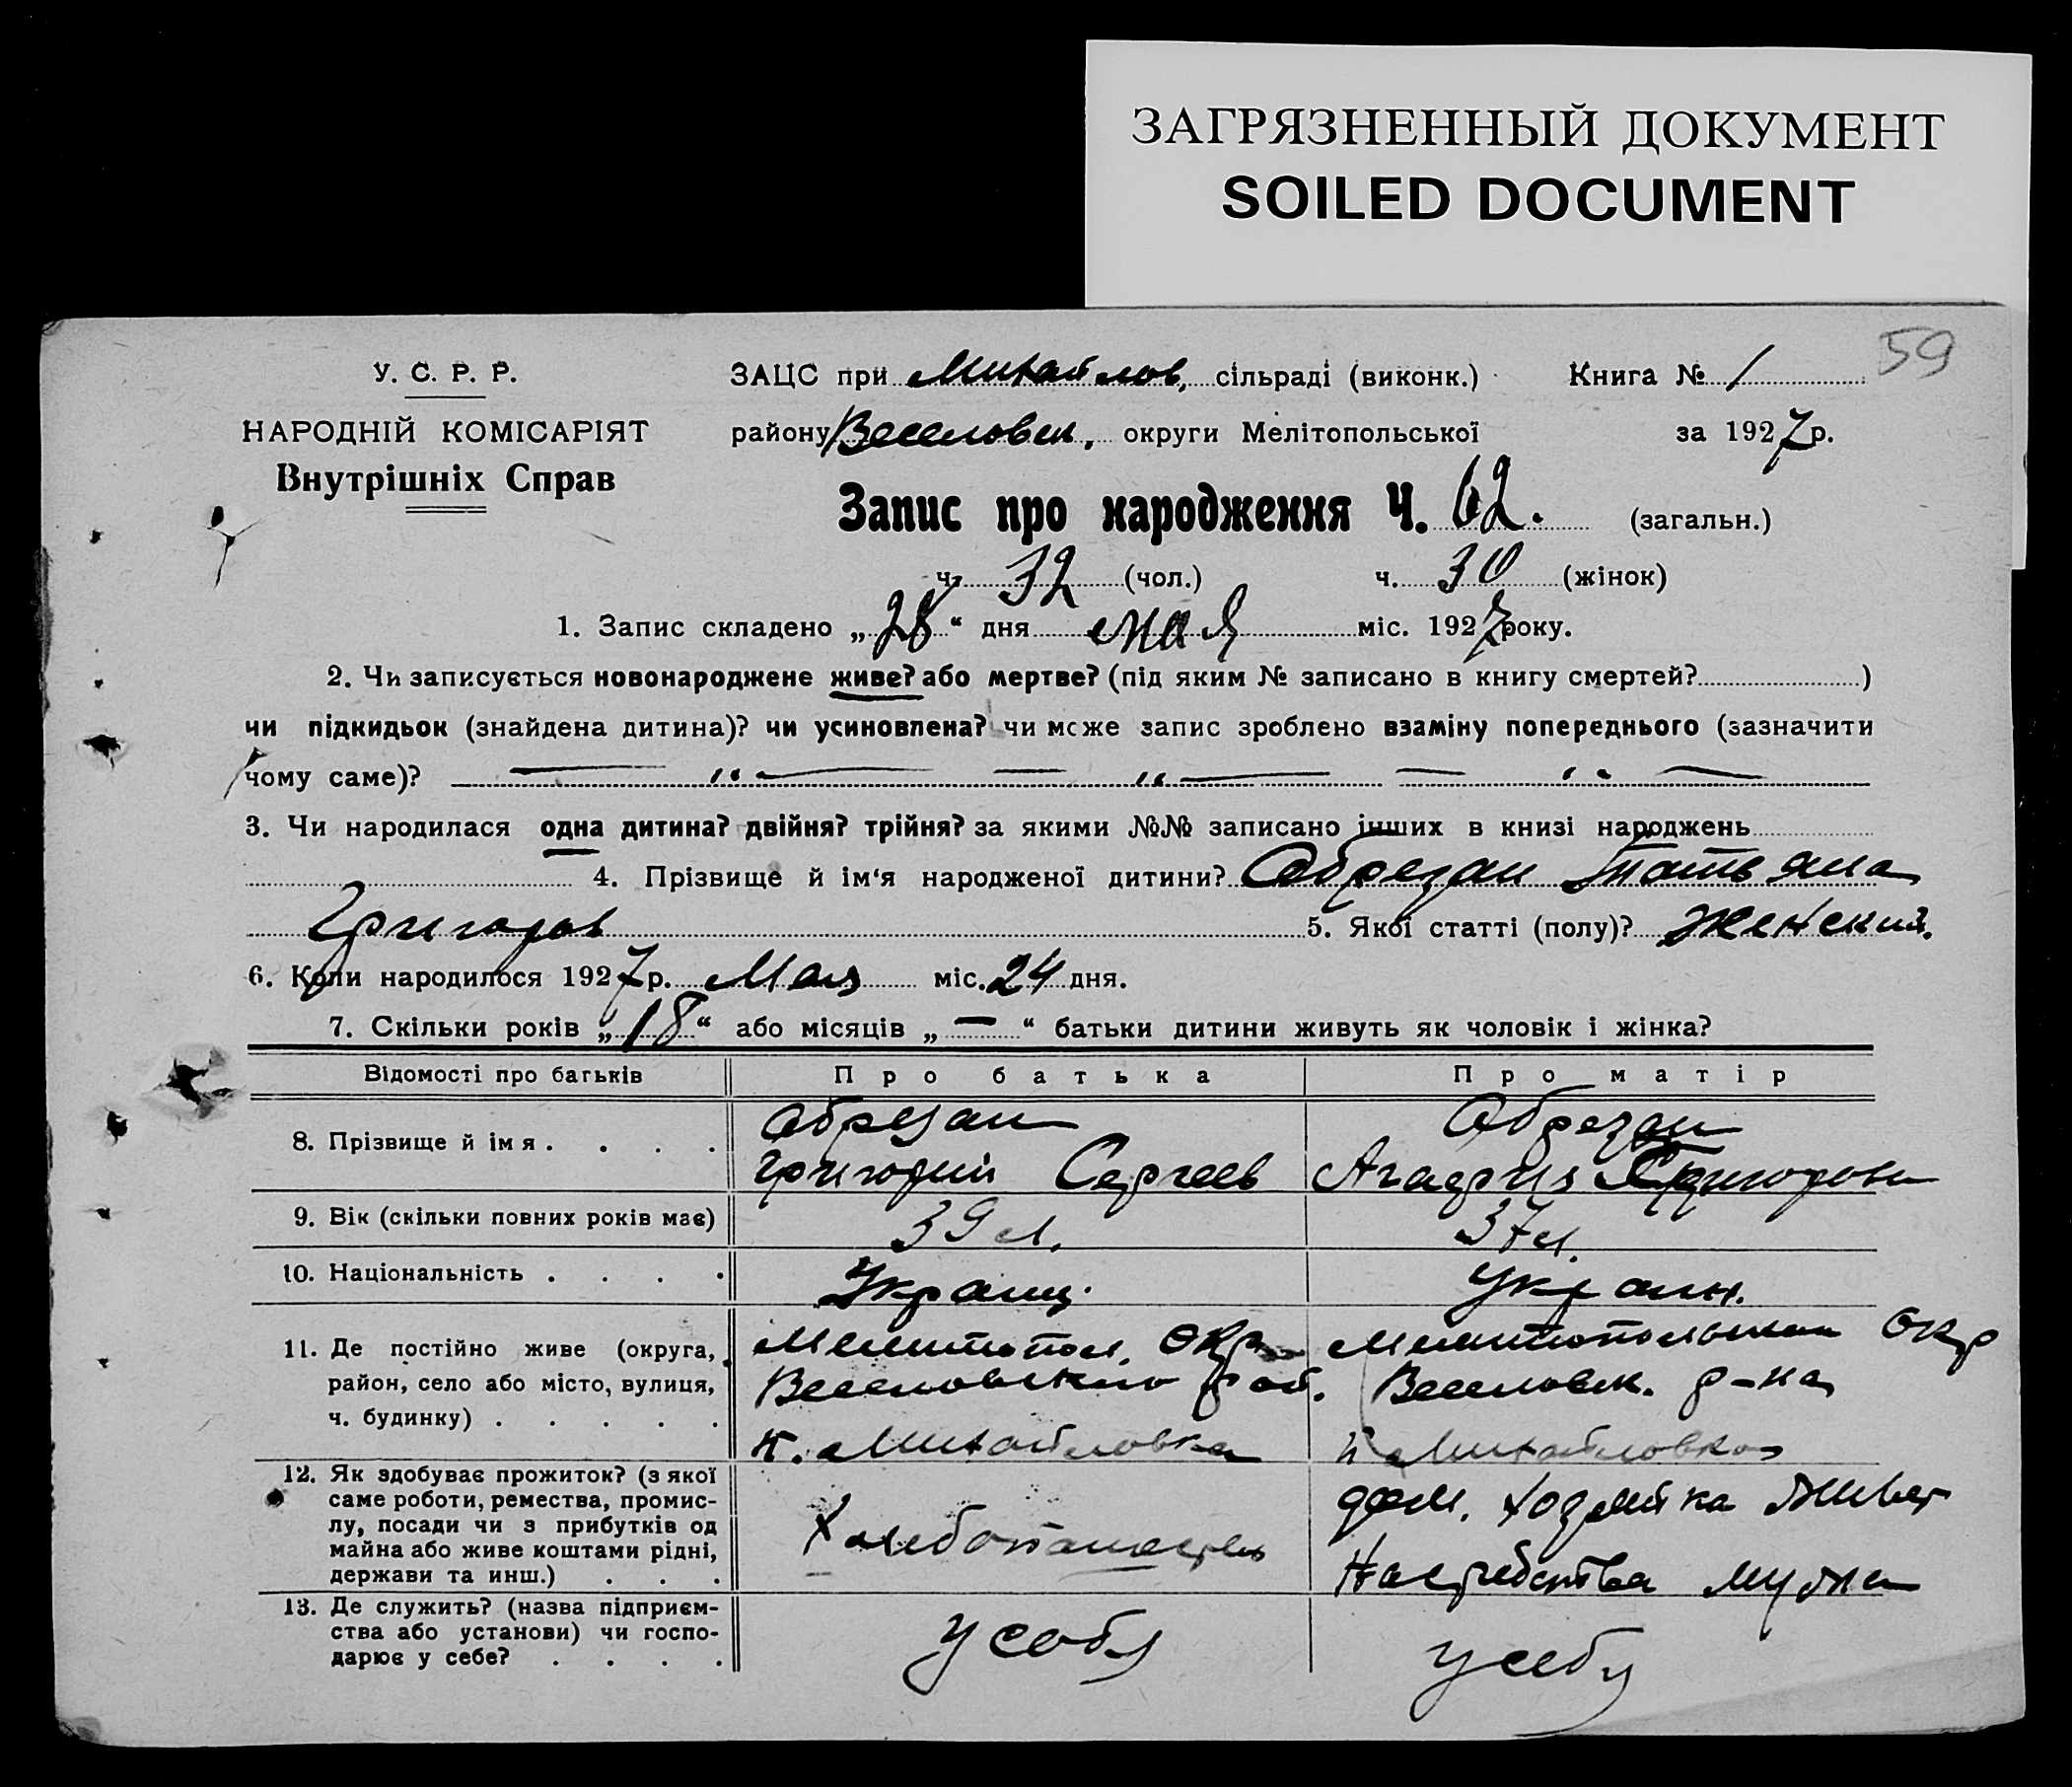 ЗАГРЯЗНЕННЫЙ ДОКУМЕНТ
SOILED DOCUMENT
59
У. С. Р. Р.
НАРОДНІЙ КОМІСАРІЯТ
Внутрішніх Справ
ЗАЦС при Михайлов, сільраді (виконк.) Книга № 1
району Веселовск, округи Мелітопольської за 1927 р.
Запис про народження Ч. 62. (загальн.)
ч. 32 (чол.) ч. 30 (жінок)
1. Запис складено „28“ дня мая міс. 1927 року.
2. Чи записується новонароджене живе? або мертве? (під яким № записано в книгу смертей? )
чи підкидьок (знайдена дитина)? чи усиновлена? чи може запис зроблено взаміну попереднього (зазначити
чому саме)? — „ — — „ — — „ —
3. Чи народилася одна дитина? двійня? трійня? за якими №№ записано інших в книзі народжень
4. Прізвище й ім‘я народженої дитини? Обрезан Татьяна
Григоров 5. Якої статті (полу)? Женский.
6. Коли народилося 1927 р. Мая міс. 24 дня.
7. Скільки років „18“ або місяців „—“ батьки дитини живуть як чоловік і жінка?
Відомості про батьків Про батька Про матір
8. Прізвище й імя . . . . Обрезан Григорий Сергеев Обрезан Григоров
9. Вік (скільки повних років має) 39 л. 37 л.
10. Національність . . . . Украинц. Украин.
11. Де постійно живе (округа, Мелитопол. Окр Мелитопольская Окр
район, село або місто, вулиця, Веселовского рай. Веселовск. р-на
ч. будинку) . . . . . к. Михайловка к Михайловка
12. Як здобуває прожиток? (з якої дом. хозяйка живет
саме роботи, ремества, промис-
лу, посади чи з прибутків од Хлебопашец
майна або живе коштами рідні,
держави та инш.) . . . На средства мужа
13. Де служить? (назва підприєм-
ства або установи) чи госпо- у себя у себя
дарює у себе? . . . .